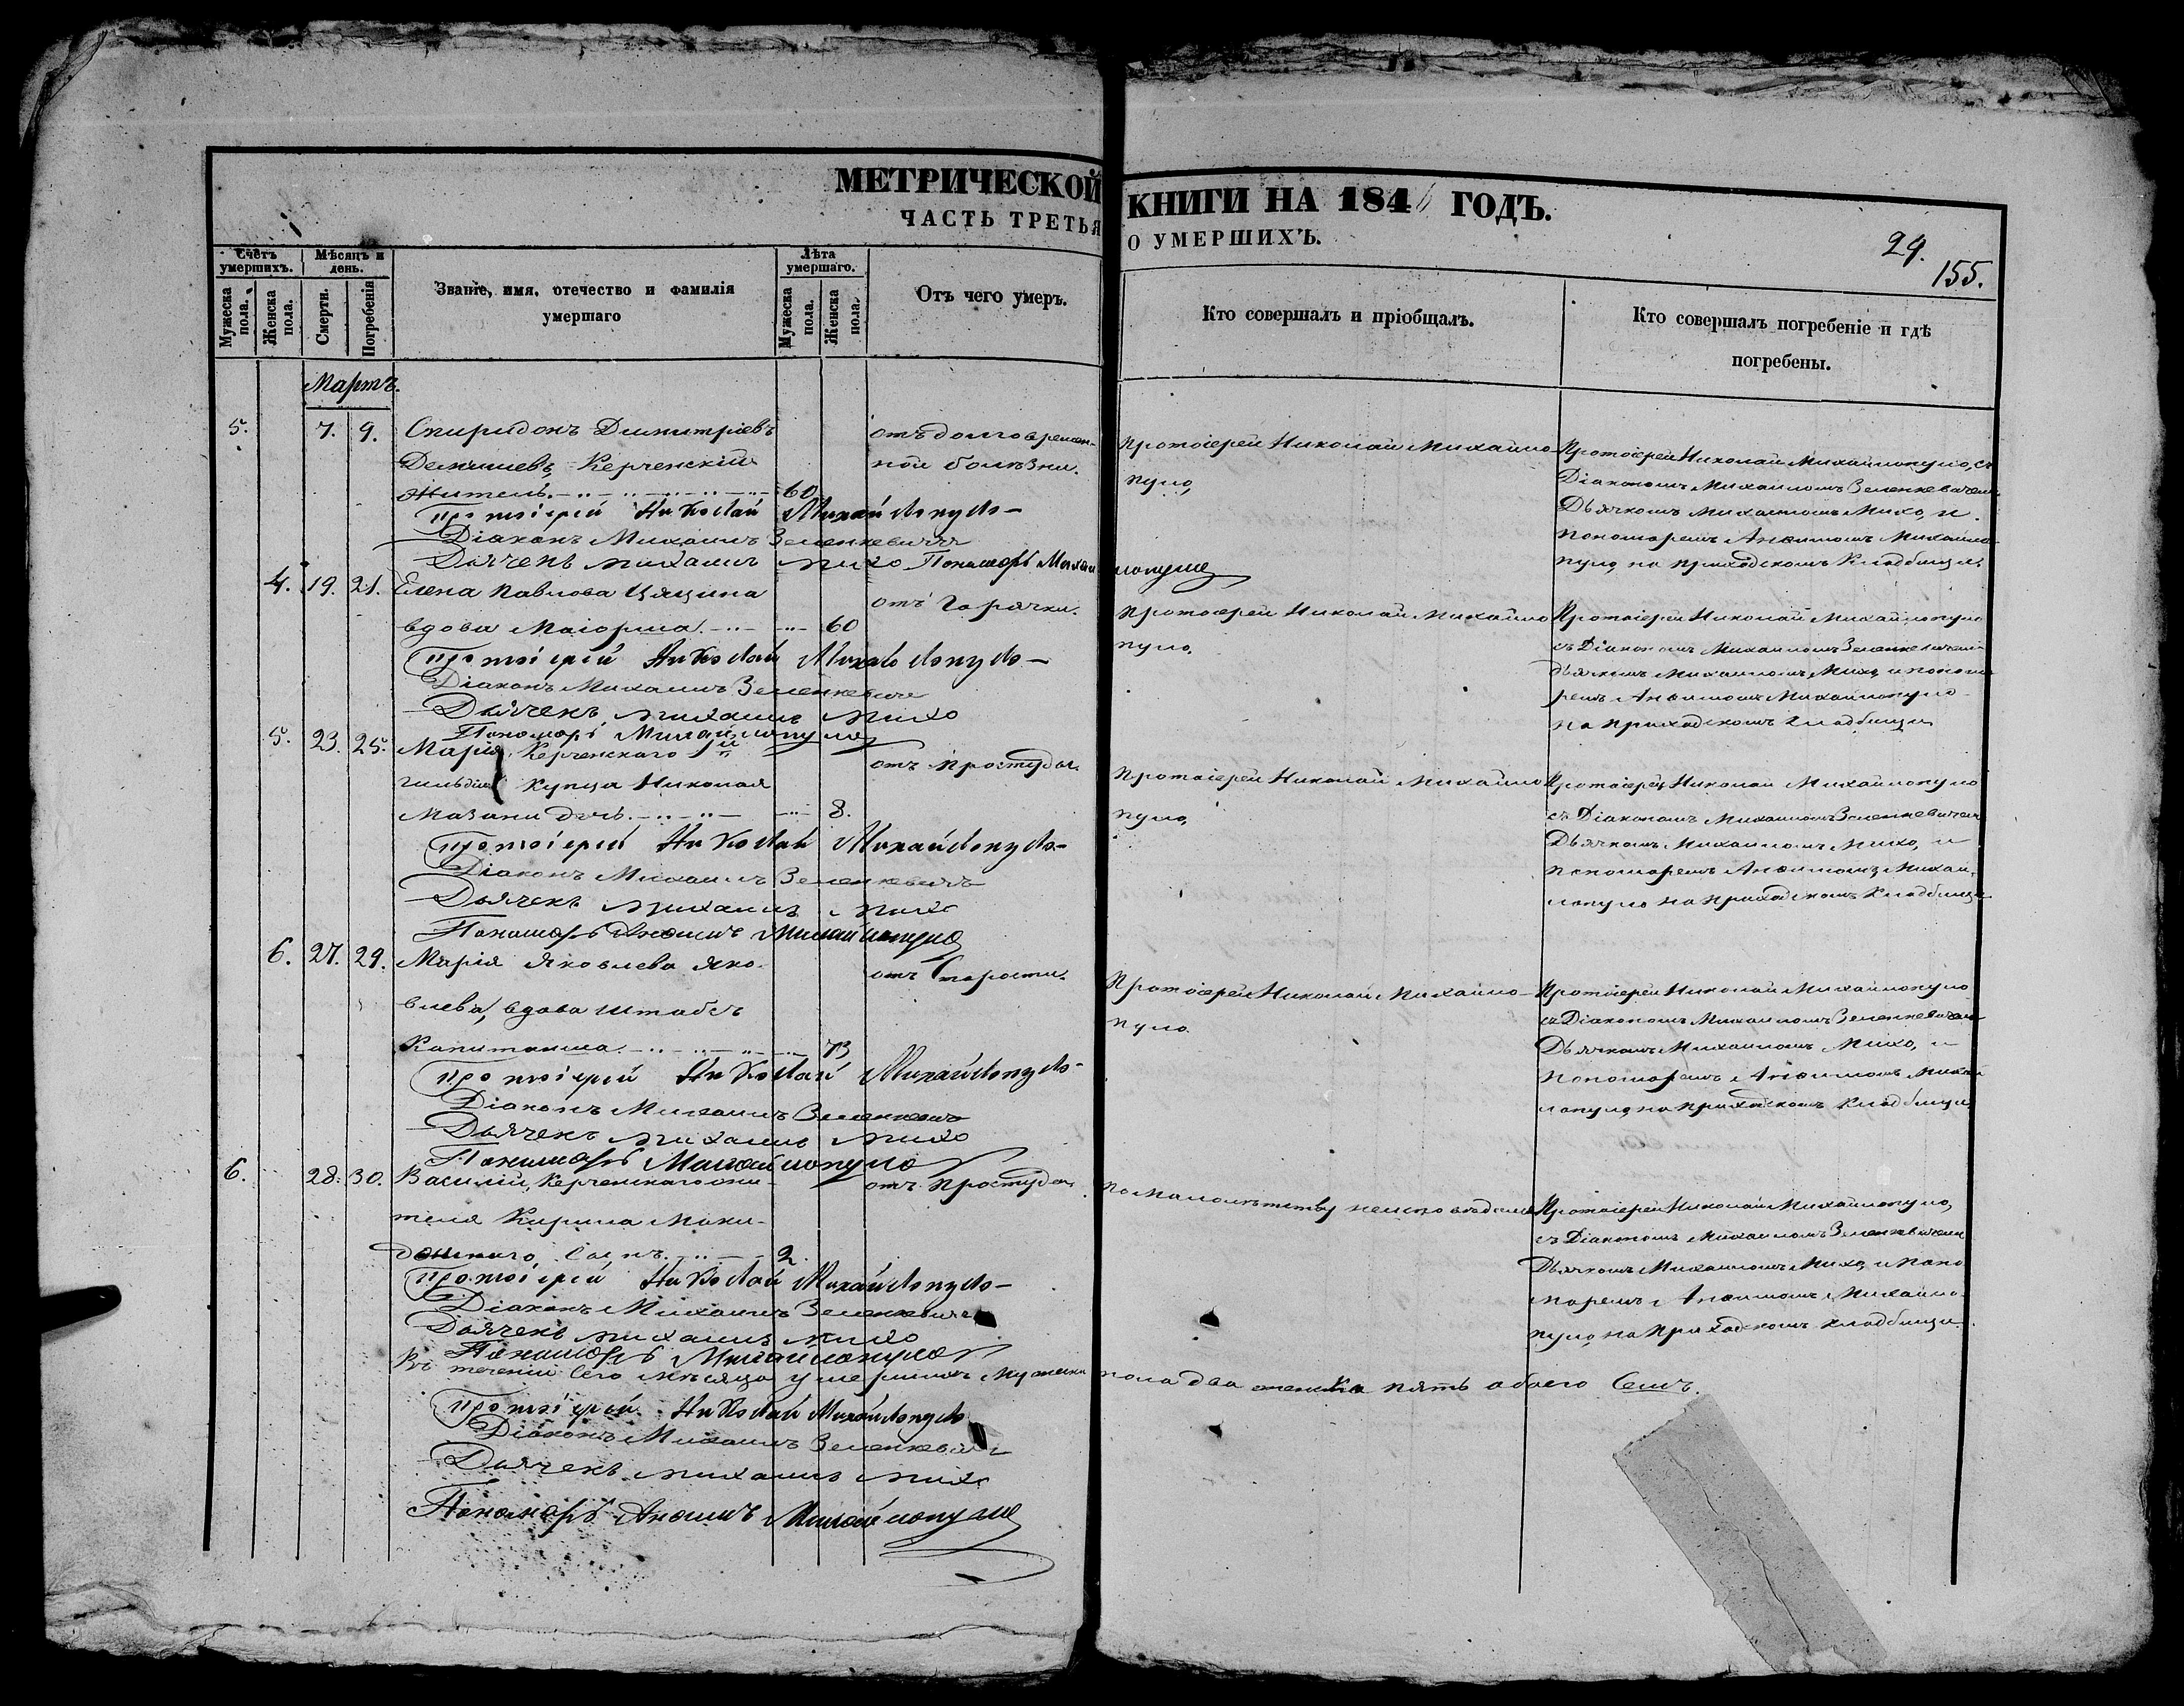 МЕТРИЧЕСКОЙ КНИГИ НА 184 ГОДЪ.
ЧАСТЬ ТРЕТЬЯ О УМЕРШИХЪ.
29.
155.
Счетъ умершихъ.
Мужеска пола.
Женска пола.
Мѣсяцъ и день.
Смерти.
Погребенія
Званіе, имя, отечество и фамилія умершаго
Лѣта умершаго.
Мужеска пола.
Женска пола.
Отъ чего умеръ.
Кто совершалъ и пріобщалъ.
Кто совершалъ погребеніе и гдѣ погребены.
Мартъ.
5. 7. 9. Спиридонъ Димитріевъ
Керченскій
житель. 60
отъ долговремен-
ной болѣзни.
Протоіерей Николай Михайло-
пуло,
Протоіерей Николай Михайлопуло, съ
Діакономъ Михаиломъ Зеленкевичемъ
Дьячкомъ Михаиломъ Михо, и
пономаремъ Анѳимомъ Михайло-
пуло, на приходскомъ Кладбищѣ
Протоіерей Николай Михайлопуло
Діаконъ Михаилъ Зеленкевичъ
Дьячекъ Михаилъ Михо Пономарь Михайлопуло
4. 19. 21. Елена Павлова
вдова Маіорша. 60
отъ Горячки.
Протоіерей Николай Михайло
пуло,
Протоіерей Николай Михайлопуло
съ Діакономъ Михаиломъ Зеленкевичемъ
дьячкомъ Михаиломъ Михо, и понома
ремъ Анѳимомъ Михайлопуло
на приходскомъ кладбищѣ
Протоіерей Николай Михайлопуло
Діаконъ Михаилъ Зеленкевичъ
Дьячекъ Михаилъ Михо
Пономарь Михайлопуло
5. 23. 25. Марія, Керченскаго 1й
гильдіи купца Николая
Мазани дочь. 8.
отъ простуды.
Протоіерей Николай Михайло
пуло,
Протоіерей Николай Михайлопуло
съ Діакономъ Михаиломъ Зеленкевичемъ
Дьячкомъ Михаиломъ Михо, и
пономаремъ Анѳимомъ Михай
лопуло на приходскомъ Кладбищѣ
Протоіерей Николай Михайлопуло
Діаконъ Михаилъ Зеленкевичъ
Дьячекъ Михаилъ Михо
Пономарь Анѳимъ Михайлопуло
6. 27. 29. Марія Яковлева Яко-
влева, вдова штабсъ
Капитанша. 73
отъ Старости.
Протоіерей Николай Михайло-
пуло.
Протоіерей Николай Михайлопуло
съ Діакономъ Михаиломъ Зеленкевичемъ
Дьячкомъ Михаиломъ Михо, и
пономаремъ Анѳимомъ Михай
лопуло, на приходскомъ Кладбищѣ
Протоіерей Николай Михайлопуло
Діаконъ Михаилъ Зеленкевичъ
Дьячекъ Михаилъ Михо
Пономарь Михайлопуло
6. 28. 30. Василій, Керченскаго жи-
теля Кирила
Сынъ. 2.
отъ простуды
по малолѣтству неисповѣданъ
Протоіерей Николай Михайлопуло,
съ Діакономъ Михаиломъ Зеленкевичемъ
Дьячкомъ Михаиломъ Михо, и поно
маремъ Анѳимомъ Михайло
пуло, на приходскомъ кладбищѣ.
Протоіерей Николай Михайлопуло
Діаконъ Михаилъ Зеленкевичъ
Дьячекъ Михаилъ Михо
Пономарь Михайлопуло
Въ теченіи сего мѣсяца умершихъ мужеска пола два женска пять обоего Семь.
Протоіерей Николай Михайлопуло
Діаконъ Михаилъ Зеленкевичъ
Дьячекъ Михаилъ Михо
Пономарь Анѳимъ Михайлопуло